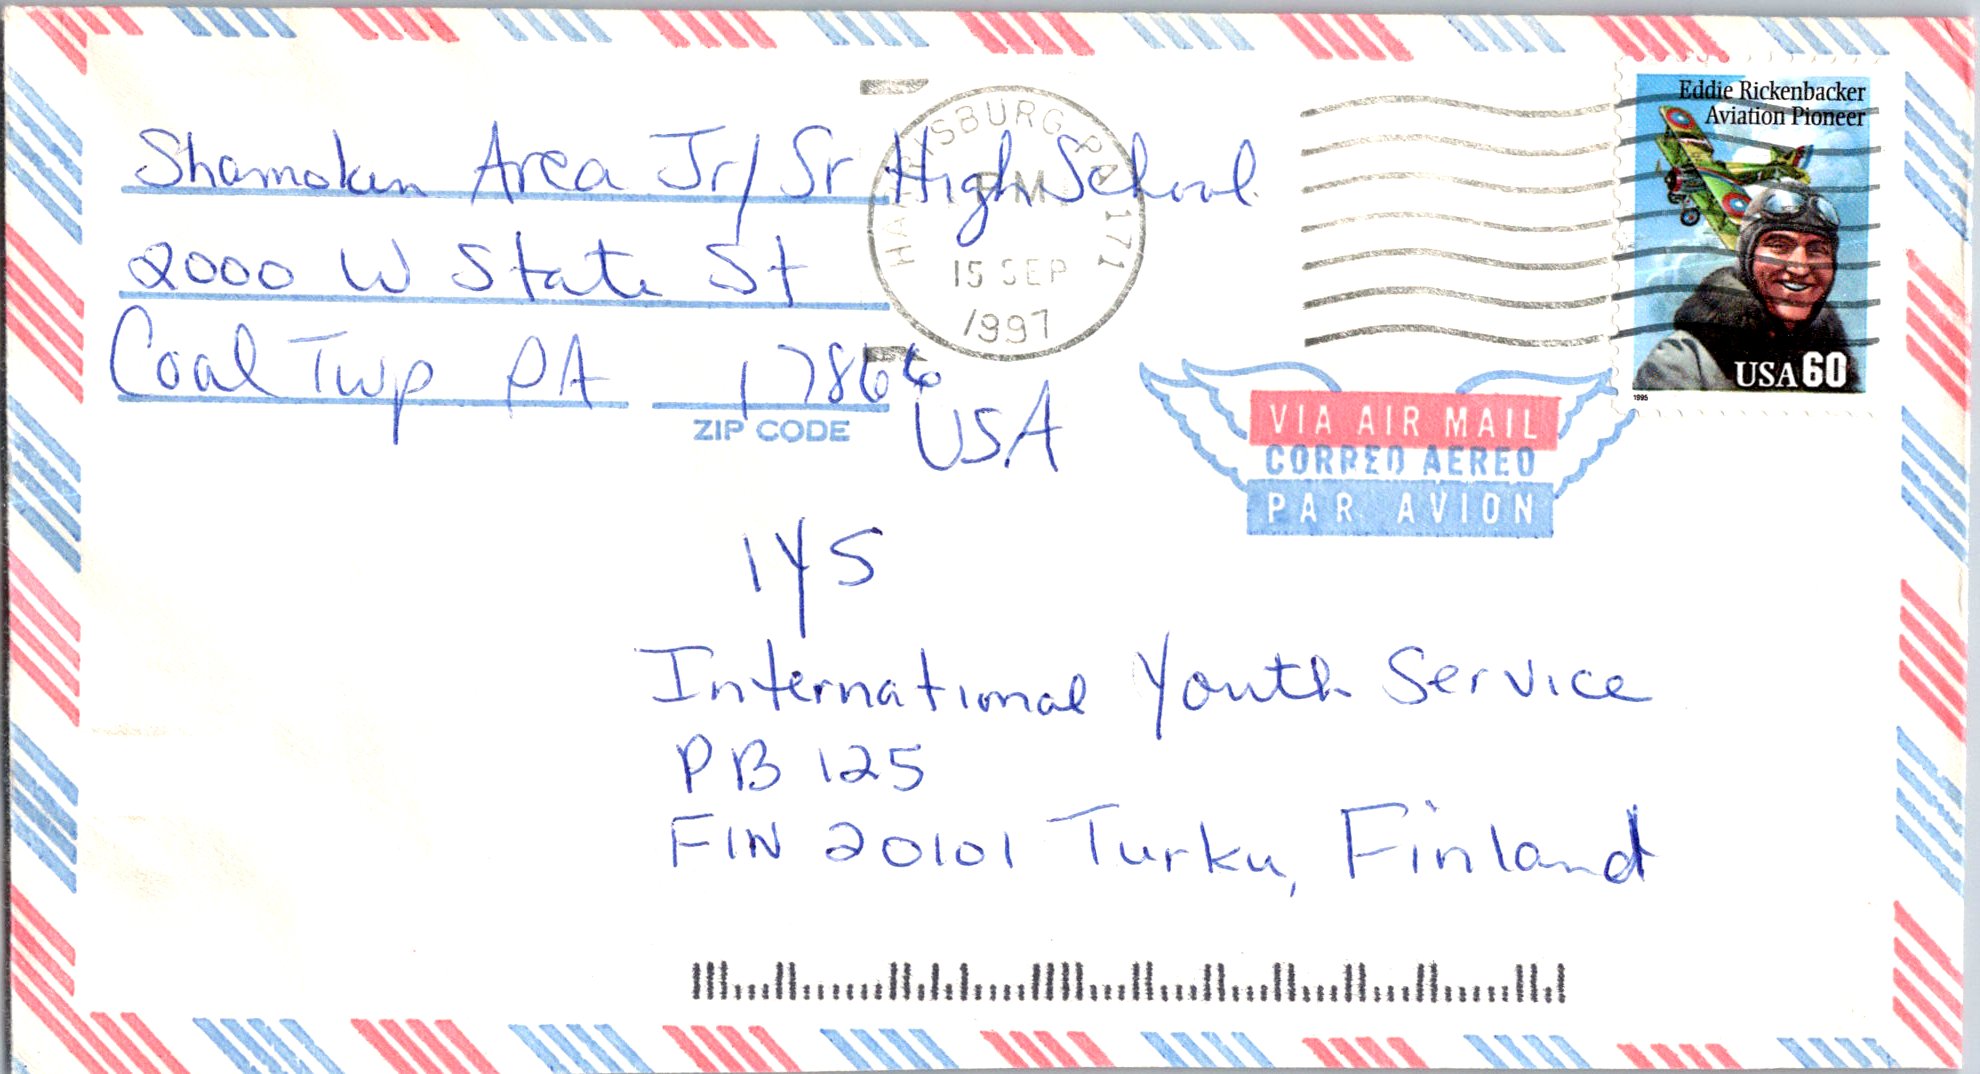 Shamokin Area Jr/Sr High School
2000 W State St
Coal Twp PA 17866
ZIP CODE
USA
HARRISBURG PA 171
PM
15 SEP
1997
Eddie Rickenbacker
Aviation Pioneer
USA 60
1995
VIA AIR MAIL
CORREO AEREO
PAR AVION
IYS
International Youth Service
PB 125
FIN 20101 Turku, Finland